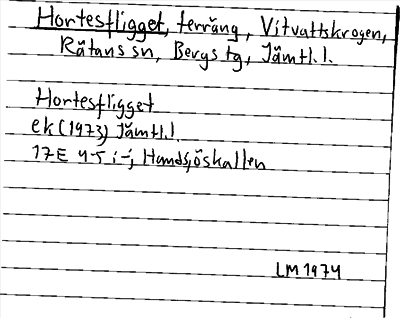 Hortesfligget, terräng, Vitvattskrogen,
Rätans sn, Bergs tg, Jämtl.l.
Hortesfligget
ek (1973) Jämtl.l
17E 4-5 i-j, Handsjöskallen
LM 1974